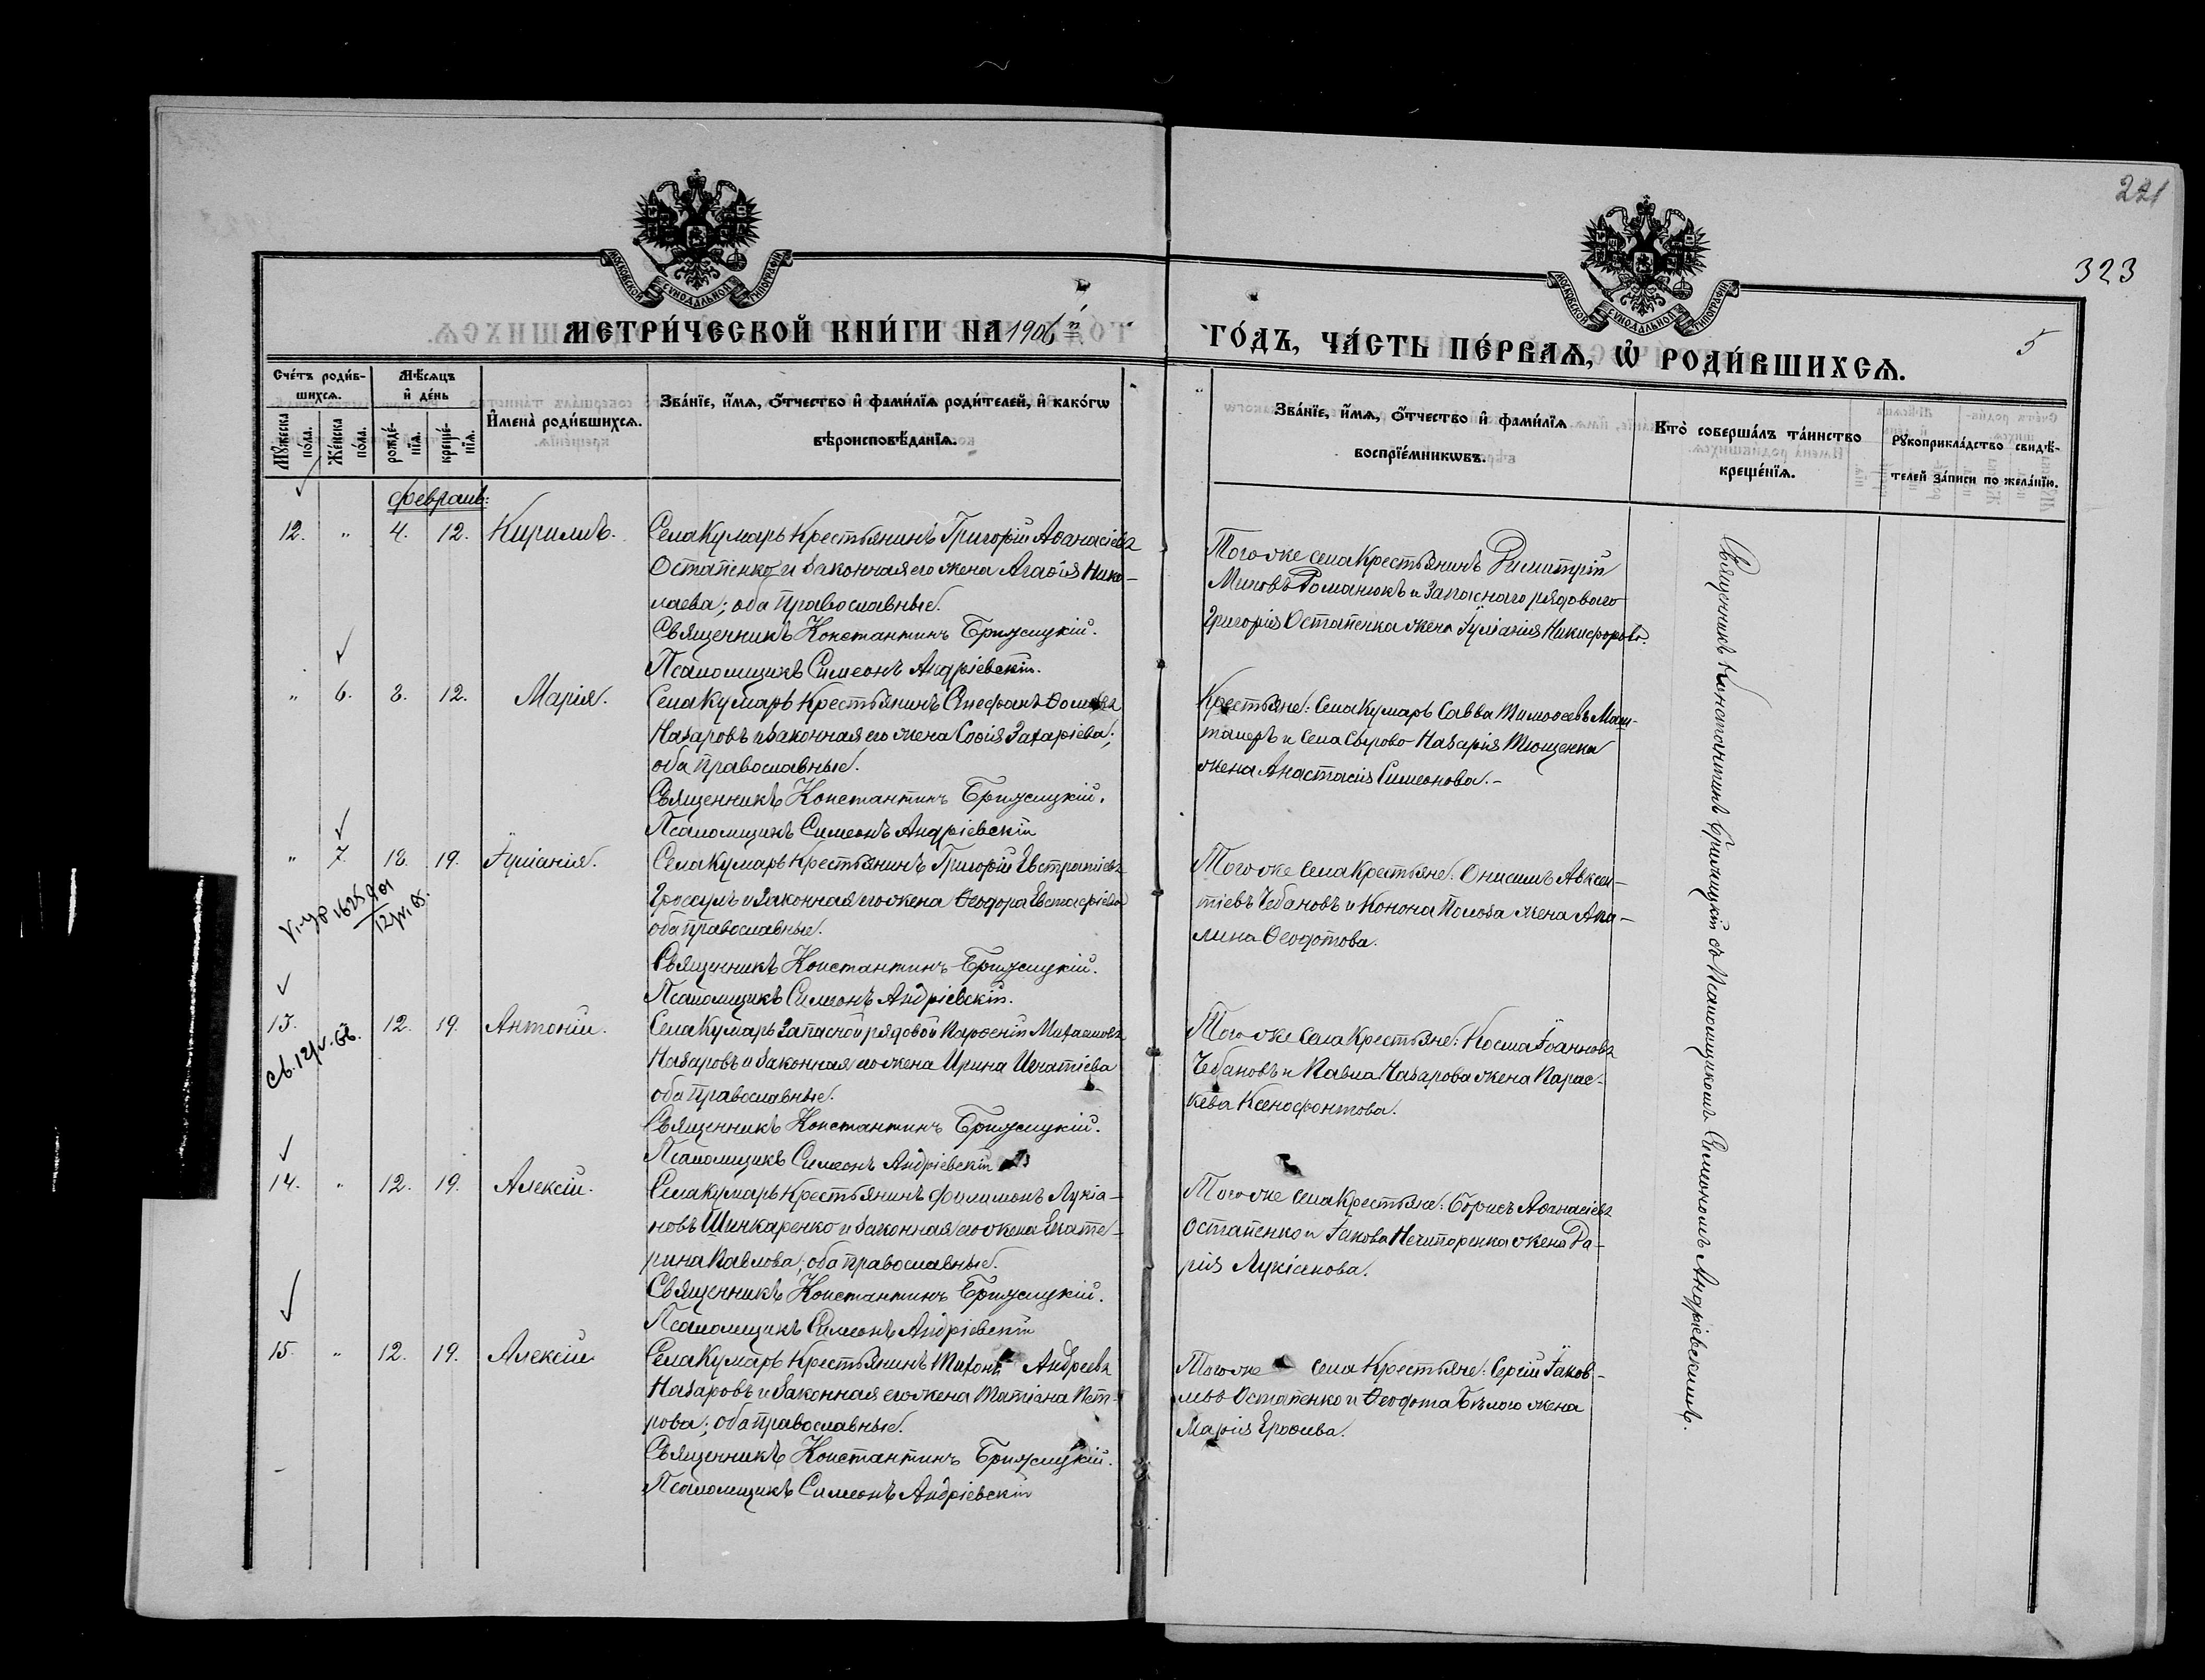 221
323
5
МЕТРИ́ЧЕСКОЙ КНИ́ГИ НА 1906 й
ГО́ДЪ, ЧА́СТЬ ПЕ́РВАѦ, Ѽ РОДИ́ВШИХСѦ.
Сче́тъ роди́в-
шихсѧ.
Мꙋжеска пола.
Же́нска по́ла.
Мѣ́сѧцъ
и҆ де́нь
рожде́-
нїѧ.
креще́-
нїѧ.
И҆мена̀ роди́вшихсѧ.
Зва́нїе, и҆́мѧ, ѻ҆́тчество и҆ фами́лїѧ роди́телей, и҆ како́гѡ
вѣроисповѣ́данїѧ.
Зва́нїе, и҆́мѧ, ѻ҆́тчество и҆ фами́лїѧ
воспрїе́мникѡвъ.
Кто̀ соверша́лъ та́инство
креще́нїѧ.
Рꙋкоприкла́дство свидѣ́-
телей за́писи по жела́нїю.
Февраль:
12. „ 4. 12. Кириллъ.
Села Кумаръ Крестьянинъ Григорій Аѳанасіевъ
Остапенко и законная его жена Агаѳія Нико-
лаева; оба православные.
Священникъ Константинъ
Псаломщикъ Симеонъ Андріевскій.
Того же села Крестьянинъ Димитрій
Романюкъ и запаснаго рядоваго
Григорія Остапенка жена Іуліанія Никифорова.
„ 6. 8. 12. Марія.
Села Кумаръ Крестьянинъ Стефанъ
Назаровъ и законная его жена Софія Захаріева;
оба православные.
Священникъ Константинъ
Псаломщикъ Симеонъ Андріевскій
Крестьяне: села Кумаръ Савва Тимоѳеевъ
и села Сырово Назарія Тющенка
жена Анастасія Симеонова.-
„ 7. 18. 19. Іуліанія.
Села Кумаръ Крестьянинъ Григорій Евстратіевъ
Гроссулъ и законная его жена Ѳеодора Евстафіева
оба православные.
Священникъ Константинъ
Псаломщикъ Симеонъ Андріевскій.
Того же села Крестьяне: Онисимъ Авксен-
тіевъ Чебановъ и Конона жена Аки-
лина Ѳеодотова.
13. 12. 19. Антоній.
Села Кумаръ запасной рядовой Парѳеній Михаиловъ
Назаровъ и законная его жена Ирина Игнатіева
оба православные.
Священникъ Константинъ
Псаломщикъ Симеонъ Андріевскій
Того же села Крестьяне: Косма Іоанновъ
Чебановъ и Павла Назарова жена Парас-
кева Ксенофонтова.
14. „ 12. 19. Алексій.
Села Кумаръ Крестьянинъ Филимонъ Лукіа-
новъ Шинкаренко и законная его жена Екате-
рина Павлова; оба православные.
Священникъ Константинъ
Псаломщикъ Симеонъ Андріевскій
Того же села Крестьяне: Борисъ Аѳанасіевъ
Остапенко и Іакова Нечипоренка жена Да-
рія Лукіанова.
15. „ 12. 19. Алексій
Села Кумаръ Крестьянинъ Тихонъ Андреевъ
Назаровъ и законная его жена Татіана Пет-
рова; оба православные.
Священникъ Константинъ
Псаломщикъ Симеонъ Андріевскій
Того же села Крестьяне: Сергій Іаков-
левъ Остапенко и Ѳеодота Бѣлого жена
Марія Ероѳеева.
Священникъ Константинъ съ Псаломщикомъ Симеономъ Андріевскимъ.